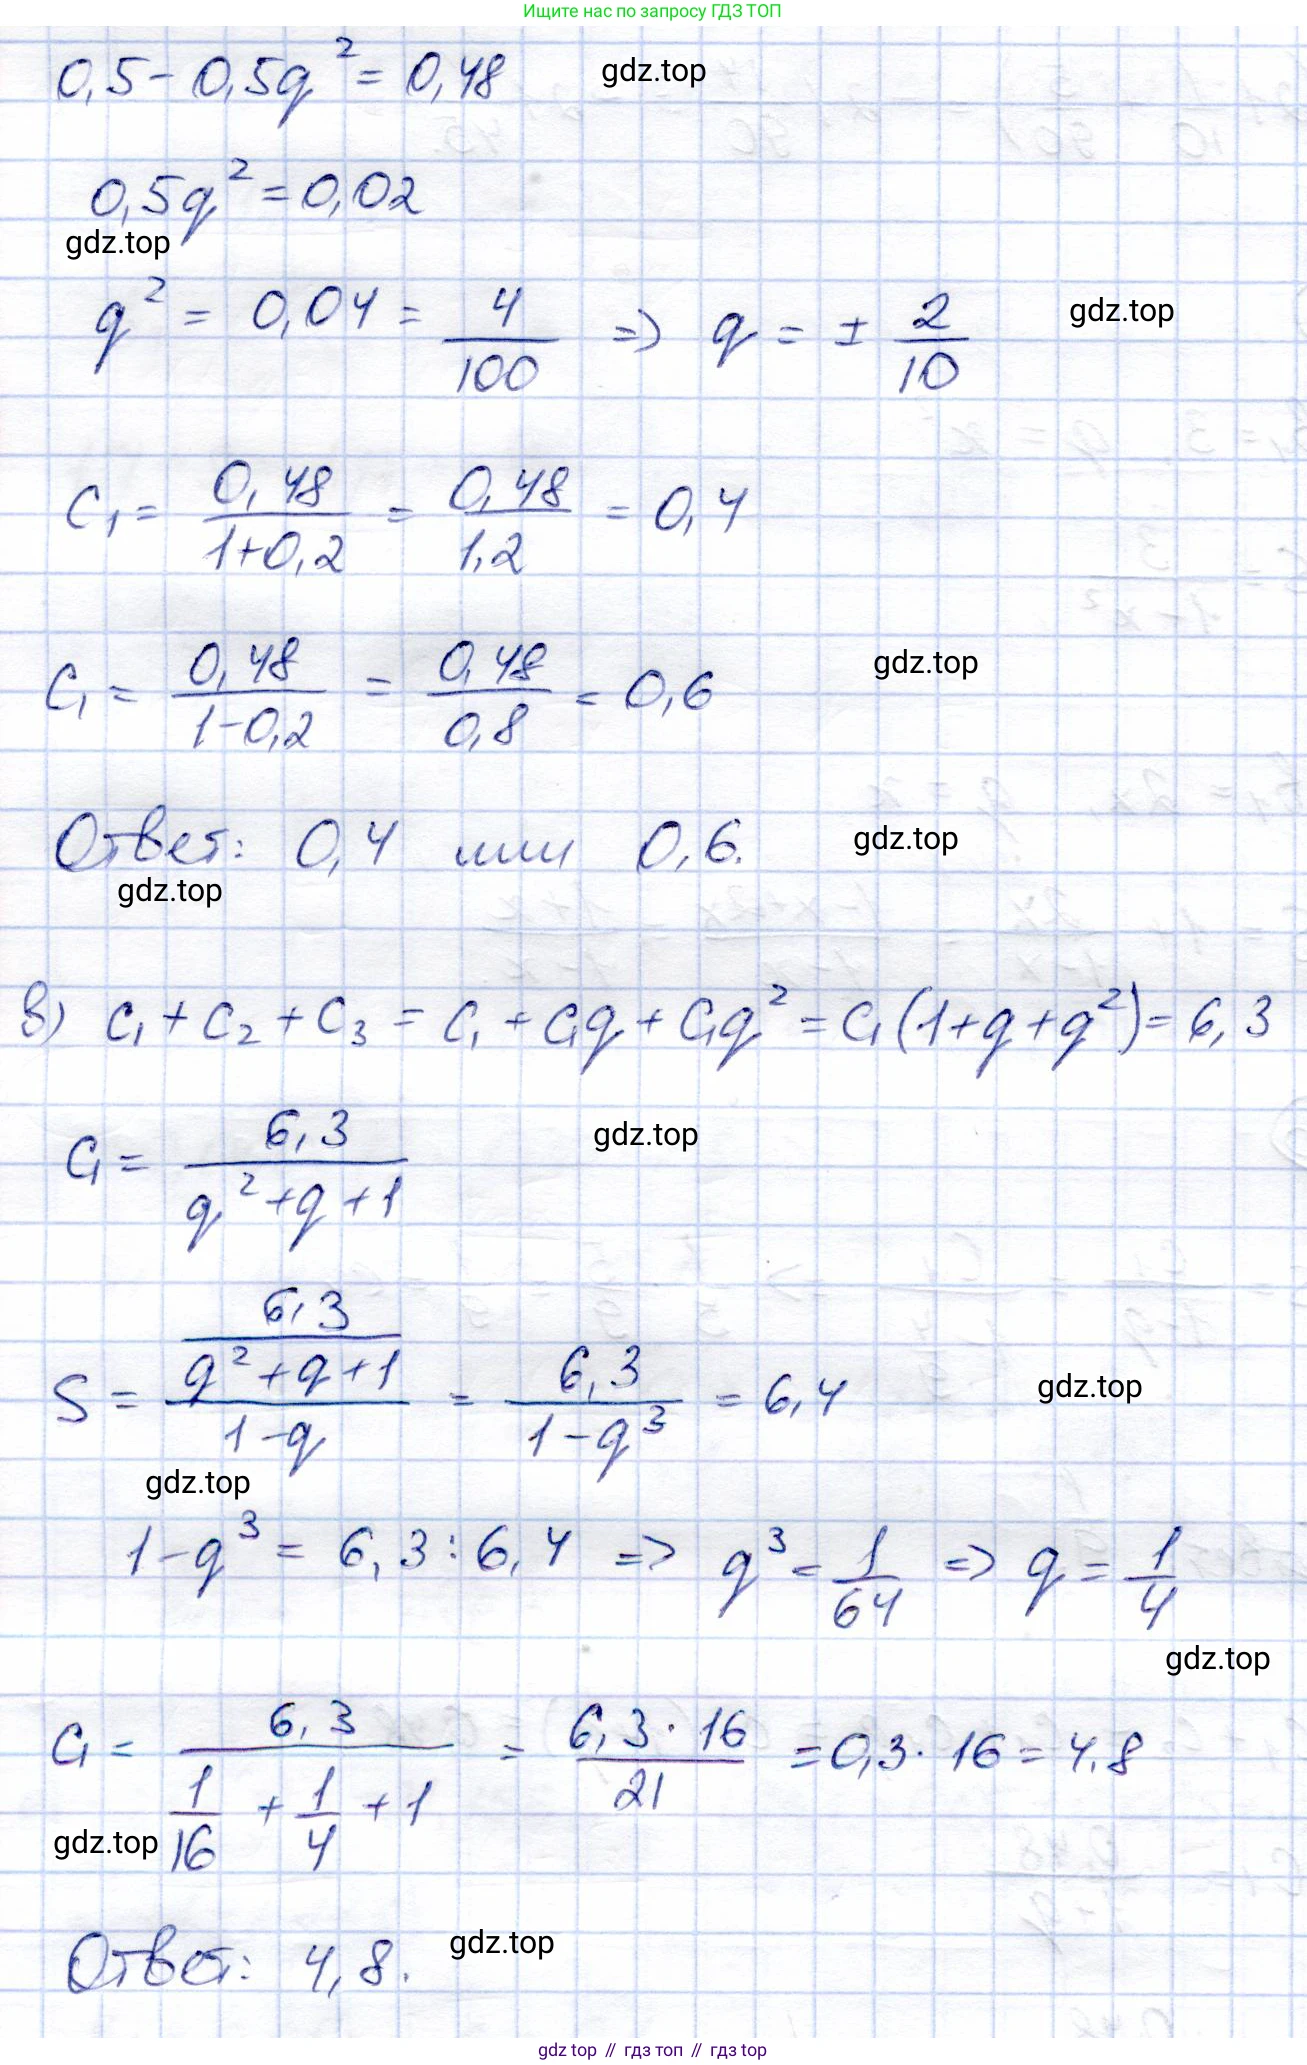 Ищите нас по запросу ГДЗ ТОП
0,5 - 0,5q² = 0,48 gdz.top
0,5q² = 0,02
gdz.top
q² = 0,04 = 4/100 => q = ± 2/10 gdz.top
C₁ = 0,48/(1+0,2) = 0,48/1,2 = 0,4
C₁ = 0,48/(1-0,2) = 0,48/0,8 = 0,6 gdz.top
Ответ: 0,4 или 0,6. gdz.top
gdz.top
в) C₁ + C₂ + C₃ = C₁ + C₁q + C₁q² = C₁(1+q+q²) = 6,3
C₁ = 6,3/(q²+q+1) gdz.top
S = (6,3/(q²+q+1))/(1-q) = 6,3/(1-q³) = 6,4 gdz.top
gdz.top
1-q³ = 6,3 : 6,4 => q³ = 1/64 => q = 1/4
gdz.top
C₁ = 6,3/(1/16 + 1/4 + 1) = 6,3·16/21 = 0,3·16 = 4,8
gdz.top
Ответ: 4,8. gdz.top
gdz top // гдз топ // gdz top